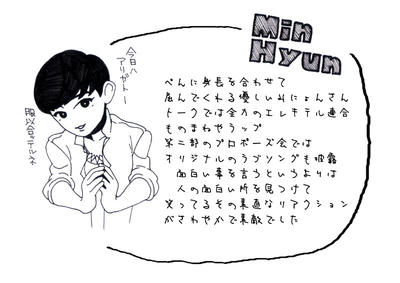 Min
Hyun
今日ハ
アリガトー
服似合ッテルネ
ぺんに身長を合わせて
屈んでくれる優しいみにょんさん
トークでは全力のエレキテル連合
ものまねやラップ
第二部のプロポーズ会では
オリジナルのラブソングも披露
面白い事を言うというよりは
人の面白い所を見つけて
笑ってるその素直なリアクション
がさわやかで素敵でした